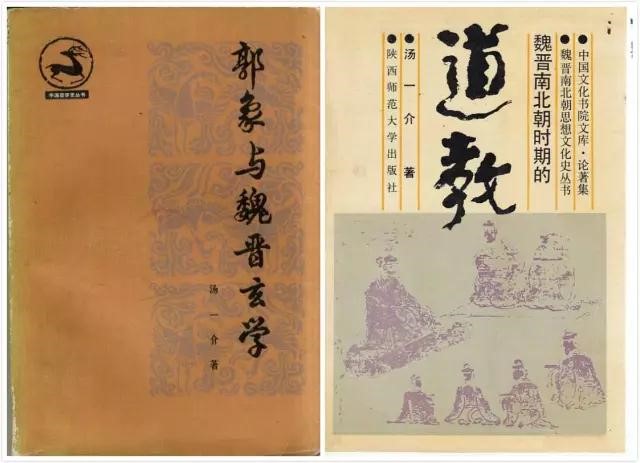 中国哲学史丛书
郭象与魏晋玄学
汤一介著
●中国文化书院文库·论著集
●魏晋南北朝思想文化史丛书
魏晋南北朝时期的
道教
●汤一介 著
●陕西师范大学出版社